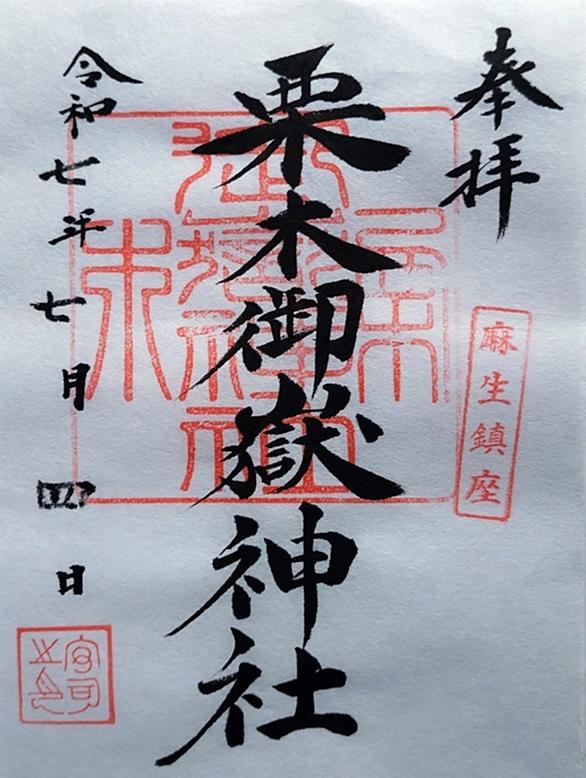 奉拝
麻生鎮座
栗木御嶽神社
令和七年七月四日
宮司之印